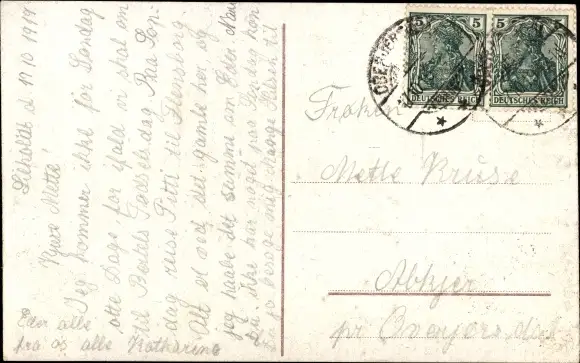 d 19 10 1917
Kjære Mette!
Jeg kommer ikke før Søndag
otte Dage for Yold vi skal om
til Bodils Fødselsdag Paa Søn
dag reise Vitti til Flensborg
Alt er ved det gamle her, og
jeg haabe det samme om Eder Naar
du ikke har noget paa Søndag kan
du jo besøge mig Mange Hilsen til
Eder alle
fra os alle Katharine
5 5
DEUTSCHES REICH
5 5
DEUTSCHES REICH
Frøken
Mette Kruse
Abkjer
pr